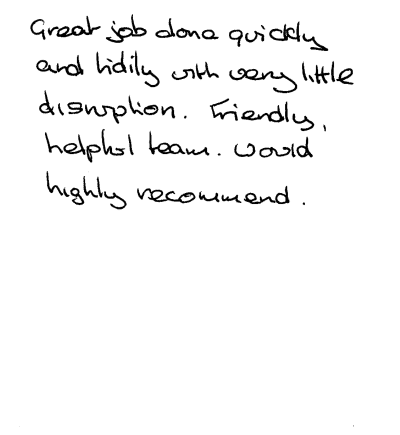 Great job done quickly
and tidily with very little
disruption. Friendly,
helpful team. Would
highly recommend.